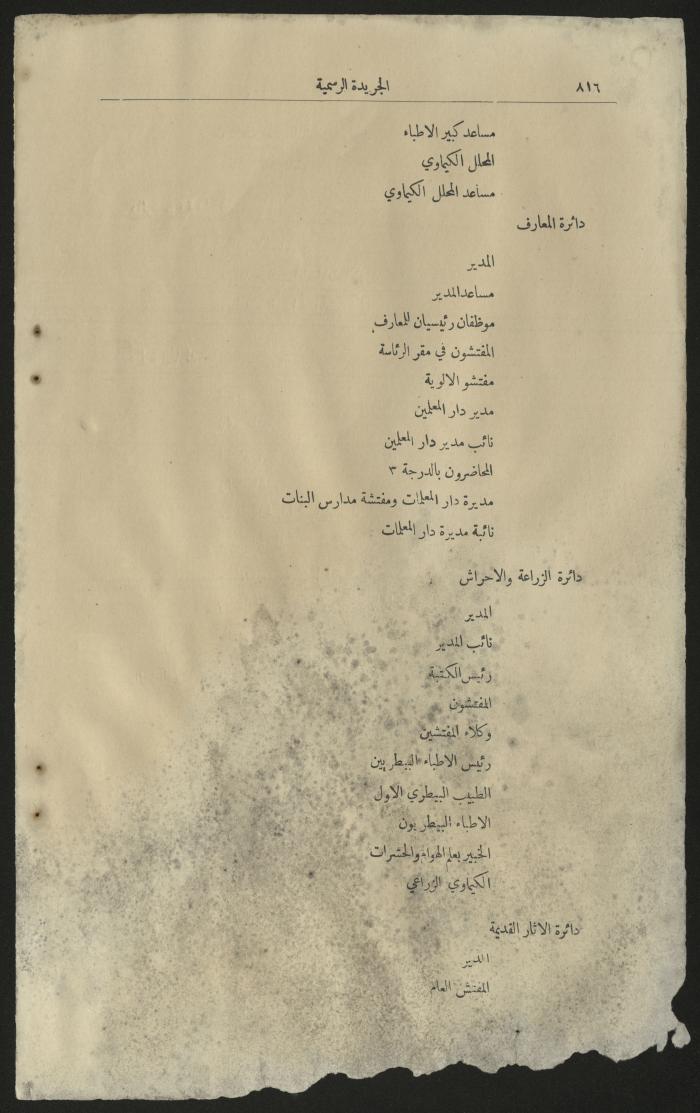 ٨١٦
الجريدة الرسمية
مساعد كبير الاطباء
المحلل الكيماوي
مساعد المحلل الكيماوي
دائرة المعارف
المدير
مساعدالمدير
موظفان رئيسيان للمعارف
المفتشون في مقر الرئاسة
مفتشو الالوية
مدير دار المعلمين
نائب مدير دار المعلمين
المحاضرون بالدرجة ٣
مديرة دار المعلمات ومفتشة مدارس البنات
نائبة مديرة دار المعلمات
دائرة الزراعة والاحراش
المدير
نائب المدير
رئيس الكتبة
المفتشون
وكلاء المفتشين
رئيس الاطباء البيطريين
الطبيب البيطري الاول
الاطباء البيطريون
الخبير بعلم الهوام والحشرات
الكيماوي الزراعي
دائرة الاثار القديمة
المدير
المفتش العام